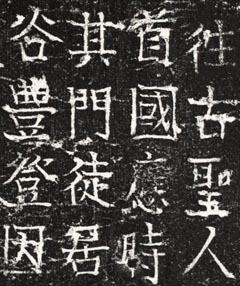 往古聖人
首國應時
其門徒居
谷豐登因